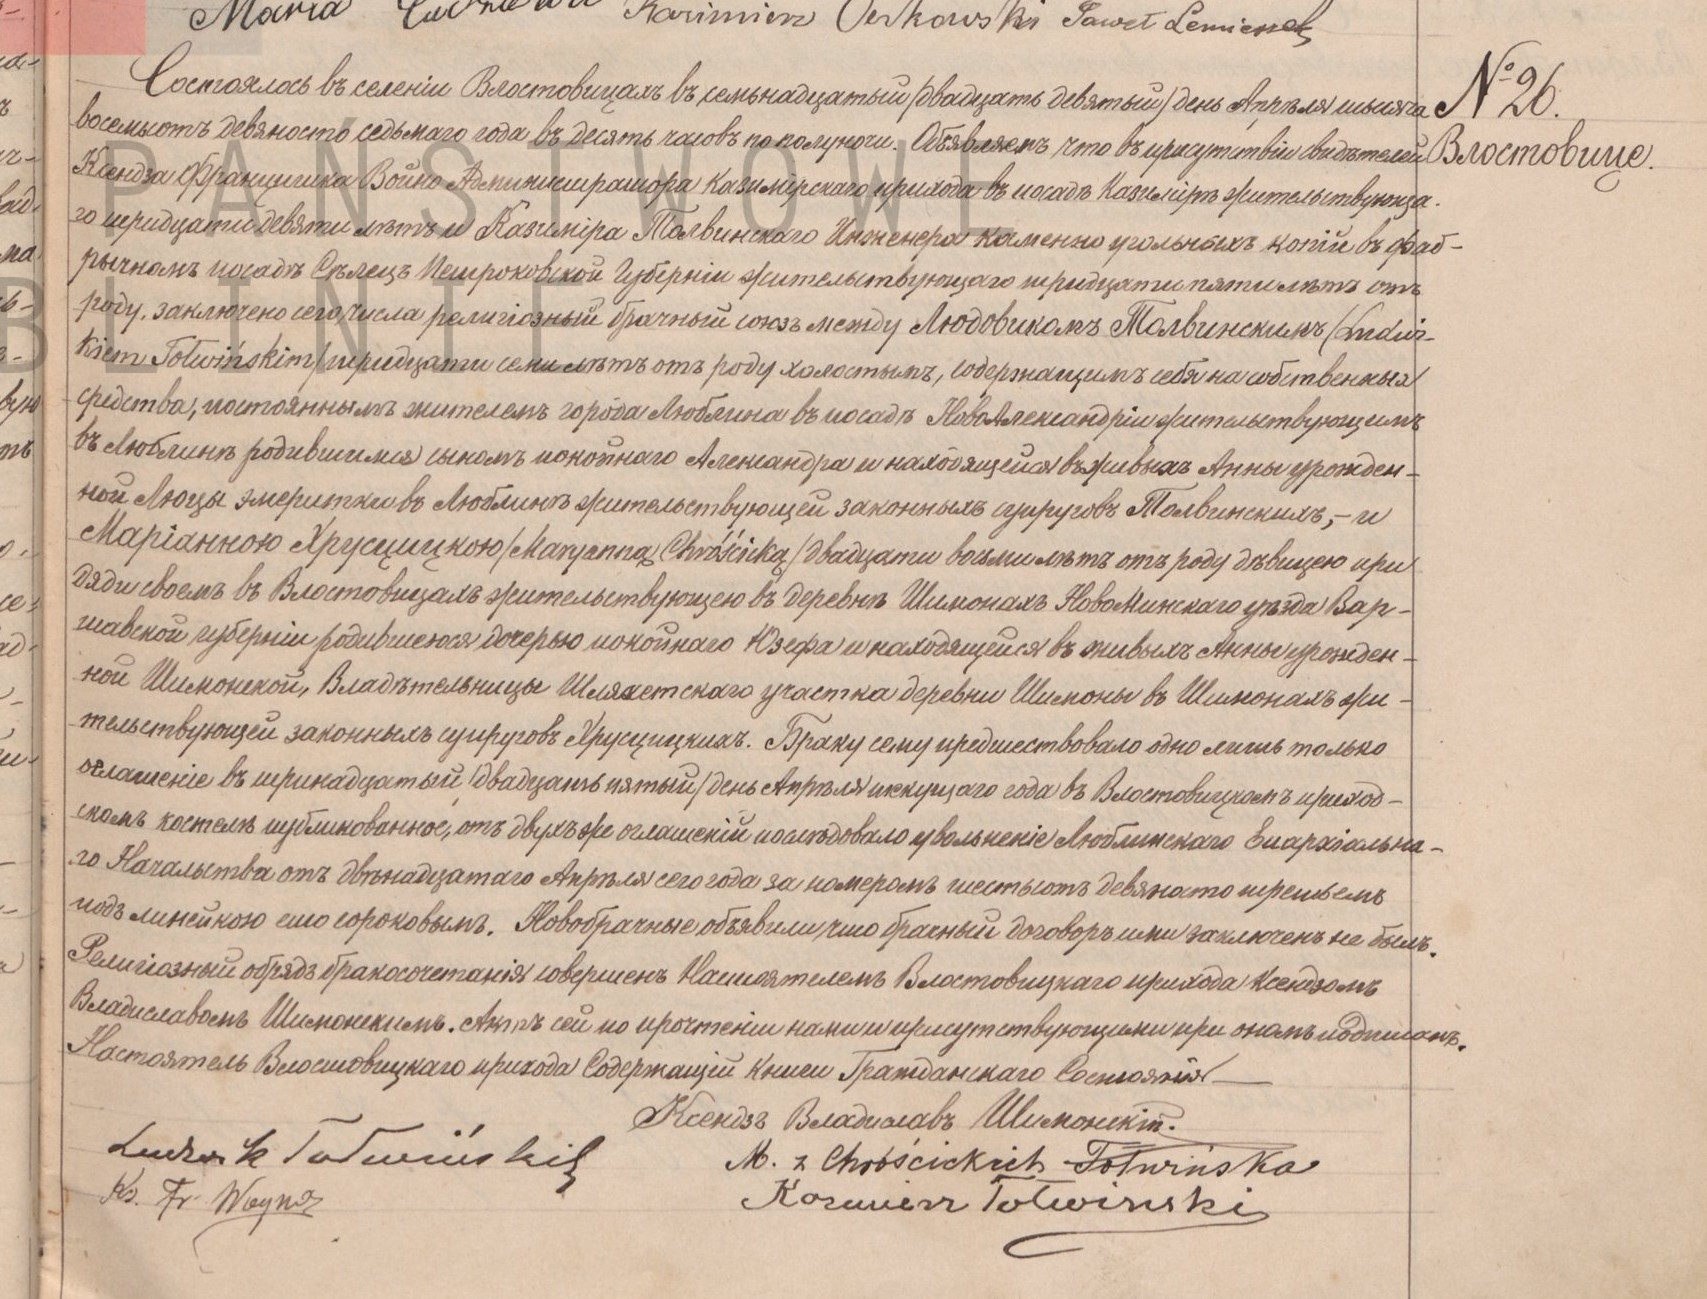 Maria Kazimierz Paweł
Состоялось въ селеніи Влостовицахъ въ семьнадцатый /двадцать девятый/ день Апрѣля тысяча № 26.
восемьсотъ девяносто седьмаго года въ десять часовъ по полуночи. Объявляемъ что въ присутствіи свидѣтелей Влостовице.
Ксендза Францишка Войно Администратора Казимірскаго прихода въ посадѣ Казиміръ жительствующа-
го тридцати девяти лѣтъ и Казиміра Толвинскаго Инженера каменно угольныхъ копій въ фаб-
рычномъ посадѣ Сѣлецъ Петроковской Губерніи жительствующаго тридцати пяти лѣтъ отъ
роду, заключено сего числа религіозный брачный союзъ между Людовикомъ Толвинскимъ /Ludwi-
kiem Tołwińskim/ тридцати семи лѣтъ отъ роду холостымъ, содержащимъ себя на собственныя
средства, постояннымъ жителемъ города Люблина въ посадѣ НовоАлександріи жительствующимъ
въ Люблинѣ родившимся сыномъ покойнаго Александра и находящейся въ живыхъ Анны урожден-
ной Люцы эмеритки въ Люблинѣ жительствующей законныхъ супруговъ Толвинскихъ, - и
Маріанною Хрусцицкою /Maryanną Chróścicką/ двадцати восьми лѣтъ отъ роду дѣвицею при
дяди своемъ въ Влостовицахъ жительствующею въ деревнѣ Шимонахъ НовоМинскаго уѣзда Вар-
шавской губерніи родившеюся дочерью покойнаго Юзефа и находящейся въ живыхъ Анны урожден-
ной Шимонской, Владѣтельницы Шляхетскаго участка деревни Шимоны въ Шимонахъ жи-
тельствующей законныхъ супруговъ Хрусцицкихъ. Браку сему предшествовало одно лишь только
оглашеніе въ тринадцатый /двадцать пятый/ день Апрѣля текущаго года въ Влостовицкомъ приход-
скомъ костелѣ публикованное, отъ двухъ же оглашеній послѣдовало увольненіе Люблинскаго Епархіальна-
го Начальства отъ двѣнадцатаго Апрѣля сего года за номеромъ шестьсотъ девяносто третьемъ
подъ линейкою сто сороковымъ. Новобрачные объявили что брачный договоръ ими заключенъ не былъ.
Религіозный обрядъ бракосочетанія совершенъ Настоятелемъ Влостовицкаго прихода Ксендзомъ
Владиславомъ Шимонскимъ. Актъ сей по прочтеніи нами и присутствующими при ономъ подписанъ.
Настоятель Влостовицкаго прихода Содержащій Книги Гражданскаго Состоянія
Ксендзъ Владиславъ Шимонскій.
Ludwik Tołwiński M. z Chróścickich Tołwińska
Ks. Fr. Woyno Kazimierz Tołwinski
PAŃSTWOWE
BLINIE